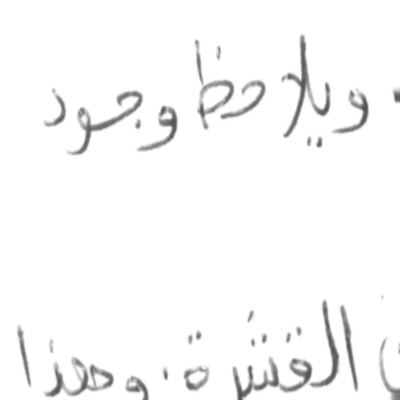 . ويلاحظ وجود
القشرة. وهذا